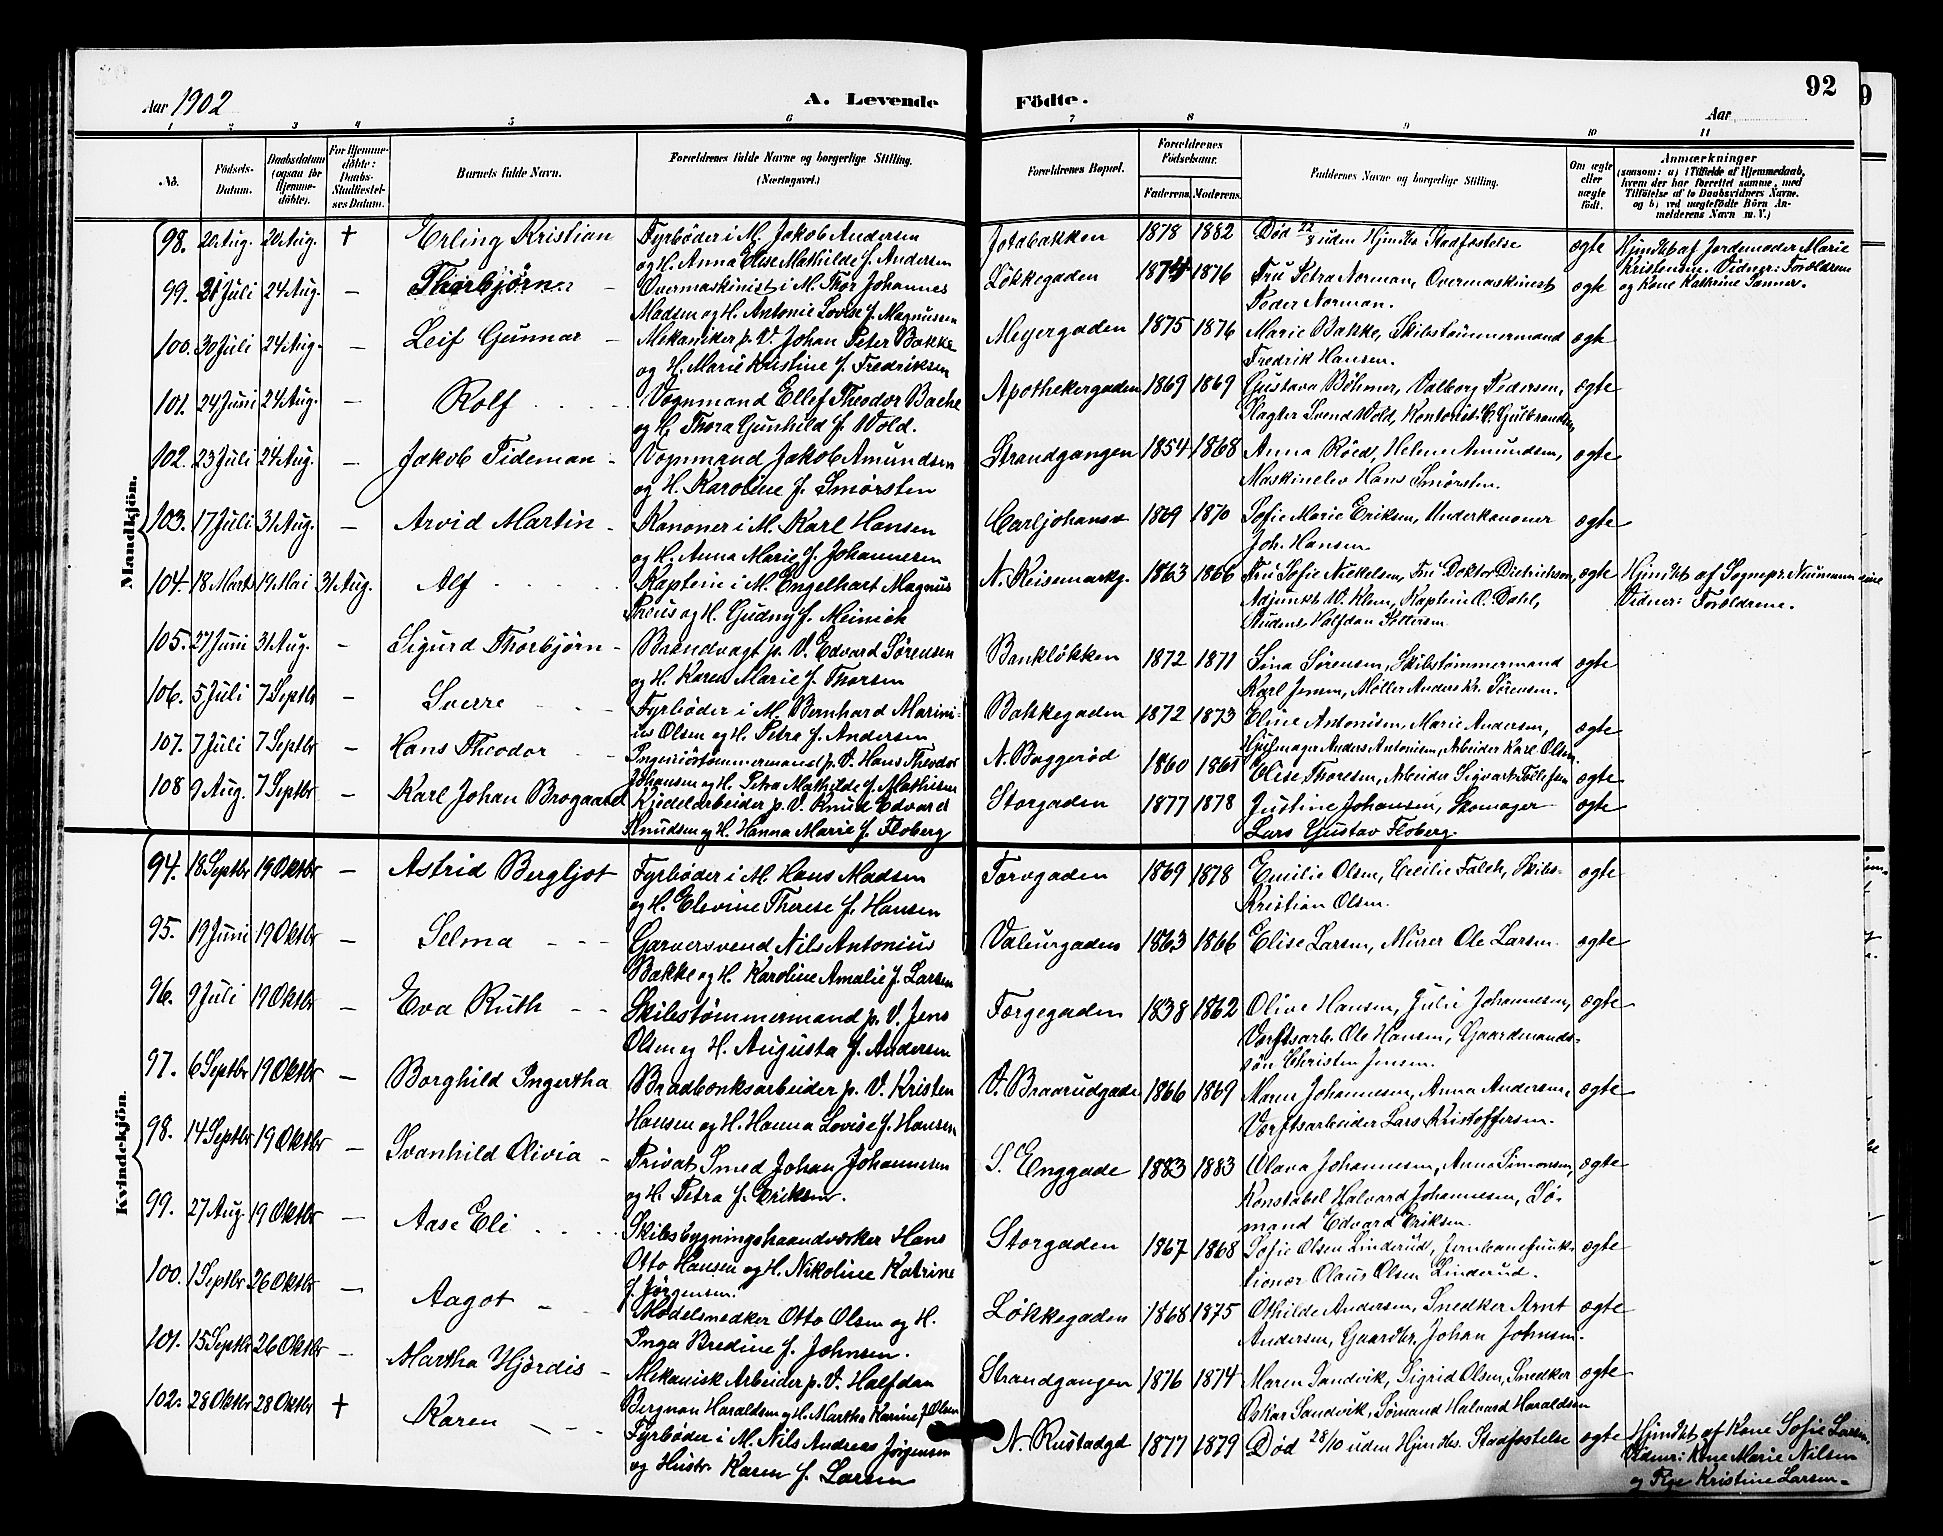 92
Aar 1902
A. Levende Födte.
Aar
1 2 3 4 5 6 7 8 9 10 11
No.
Födsels-Datum.
Daabsdatum (ogsaa for Hjemmedöbte).
For Hjemmedöbte: Daabs-Stadfæstelses Datum.
Barnets fulde Navn.
Forældrenes fulde Navne og borgerlige Stilling. (Næringsvei.)
Forældrenes Bopæl.
Forældrenes Födselsaar.
Faderens. Moderens.
Faddernes Navne og borgerlige Stilling.
Om ægte eller uægte födt.
Anmærkninger
(saasom: a) i Tilfælde af Hjemmedaab, hvem der har forrettet samme, med Tilföielse af to Daabsvidners Navne. og b) ved uægtefödte Börn Anmelderens Navn m. V.)
Mandkjön.
98. 20 Aug. 20 Aug. + Erling Kristian Fyrbøder i M. Jakob Andersen 1878 1882 Død 22/8 uden Hjmdbs Stadfæstelse ægte Hjmdbt af Jordemoder Marie
og H. Anna Elise Mathilde f. Andersen Kristensen. Vidner: Forældrene
99. 21 Juli 24 Aug. – Thorbjørn Overmaskinist i M. Thor Johannes Løkkegaden 1874 1876 Fru Petra Norman, Overmaskinist ægte og Kone Kathrine Sanner.
Madsen og H. Antonie Lovise f. Magnussen Peder Norman.
100. 30 Juli 24 Aug. – Leif Gunnar – Mekaniker p. V. Johan Peter Bakke Meyergaden 1875 1876 Marie Bakke, Skibstømmermand ægte
og H. Marie Kristine f. Fredriksen Fredrik Hansen.
101. 24 Juni 24 Aug. – Rolf Vognmand Ellef Theodor Bache Apothekergaden 1869 1869 Gustava Bøhmer, Valborg Pedersen, ægte
og H. Thora Gunhild f. Wold. Slagter Svend Wold, Kontorist C. Gulbrandsen
102. 23 Juli 24 Aug. – Jakob Tideman – Vognmand Jakob Amundsen Strandgangen 1854 1868 Anna Røed, Helene Amundsen, ægte
og H. Karoline f. Smørsten Maskinelev Hans Smørsten.
103. 17 Juli 31 Aug. – Arvid Martin – Kanoner i M. Karl Hansen Carljohansv 1869 1870 Sofie Marie Eriksen, Underkanoner ægte
og H. Anna Marie f. Johannesen Joh. Hansen.
104. 18 Marts 19 Mai 31 Aug. Alf Kaptein i M. Engelhart Magnus N. Keisemarkg. 1863 1866 Fru Sofie Nickelsen, Fru Doktor Dietrichson, ægte Hjmdbt af Sognepr. Neumann
og H. Gudny f. Meinich Adjunkt W. Klem, Kaptein O. Dahl, Vidner: Forældrene.
Student Halfdan Pettersen
105. 27 Juni 31 Aug. – Sigurd Thorbjørn – Brandvagt p. V. Edvard Sørensen Bankløkken 1872 1871 Lina Sørensen, Skibstømmermand ægte
og H. Karen Marie f. Thorsen Karl Jensen, Møller Anders Kr. Sørensen.
106. 5 Juli 7 Septbr – Sverre Fyrbøder i M. Bernhard Marini- Bakkegaden 1872 1873 Eline Antonisen, Marie Andersen, ægte
us Olsen og H. Petra f. Andersen Hjulmager Anders Antonisen, Arbeider Karl Olsen
107. 7 Juli 7 Septbr – Hans Theodor – Ingeniörtömmermand p. V. Hans Theodor N. Baggerød 1860 1861 Olise Thoresen, Arbeider Sigvart ægte
Johansen og H. Petra Mathilde f. Mathisen
108 9 Aug. 7 Septbr – Karl Johan Brogaard Kjedelarbeider p. V. Knud Edvard Storgaden 1877 1878 Justine Johansen, Skomager ægte
Knudsen og H. Hanna Marie f. Floberg Lars Gustav Floberg.
Kvindekjön.
94. 18 Septbr 19 Oktbr – Astrid Bergljot Fyrbøder i M. Hans Madsen Torvgaden 1869 1878 Emilie Olsen, Cecilie Falch, Skibs- ægte
og H. Elevine Therese f. Hansen Kristian Olsen.
95. 19 Juni 19 Oktbr – Selma – – – Garversvend Nils Antonius Valeurgaden 1863 1866 Elise Larsen, Murer Ole Larsen. ægte
Bække og H. Karoline Amalie f. Larsen
96. 9 Juli 19 Oktbr – Eva Ruth – – Skibstømmermand p. V. Jens Færgegaden 1838 1862 Olive Hansen, Julie Johannesen, ægte
Olsen og H. Augusta f. Andersen Værftsarb. Ole Hansen, Gaardmands-
søn Christen Jensen.
97. 6 Septbr 19 Oktbr – Borghild Ingertha Bradbænksarbeider p. V. Kristen V. Braarudgade 1866 1869 Maren Johannesen, Anna Andersen, ægte
Hansen og H. Hanna Lovise f. Hansen Værftsarbeider Lars Kristoffersen.
98. 14 Septbr 19 Oktbr – Svanhild Olivia – Privat Smed Johan Johannesen S. Enggade 1883 1883 Olava Johannesen, Anna Simonsen, ægte
og H. Petra f. Eriksen. Konstabel Halvard Johannesen, Sø-
mand Edvard Eriksen.
99. 27 Aug. 19 Oktbr – Aase Eli Skibsbygningshaandværker Hans Storgaden 1867 1868 Sofie Olsen Linderud, Jernbanefunk- ægte
Otto Hansen og H. Nikoline Katrine tionær Olaus Olsen Linderud.
f. Jørgensen.
100. 1 Septbr 26 Oktbr – Aagot – Modelsnedker Otto Olsen og H. Løkkegaden 1868 1875 Othilde Andersen, Snedker Arnt ægte
Inga Bredine f. Johnsen. Andersen, Gaardbr. Johan Johnsen.
101. 15 Septbr 26 Oktbr – Martha Hjørdis – Mekanisk Arbeider p. V. Halfdan Strandgangen 1876 1874 Maren Sandvik, Sigrid Olsen, Snedker ægte
Bergman Haraldsen og H. Martha Karine f. Olsen Oskar Sandvik, Sømand Halvard Haraldsen
102. 28 Oktbr 28 Oktbr + Karen – – – Fyrbøder i M. Nils Andreas Jørgensen N. Rustadgd 1877 1879 Død 28/10 uden Hjmdbs. Stadfæstelse ægte Hjmdbt af Kone Sofie Larsen.
og Hustr. Karen f. Larsen Vidner: Kone Marie Nilsen
og Pige Kristine Larsen.